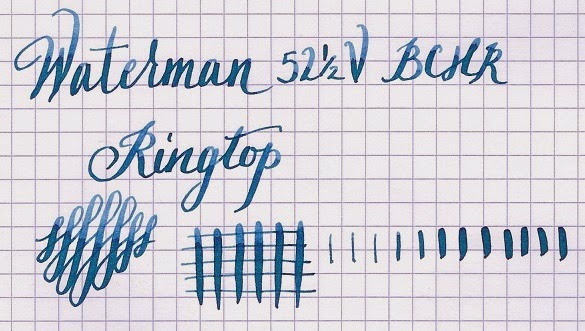 Waterman 52½V BCHR
Ringtop